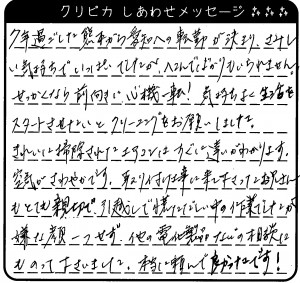 クリピカ しあわせメッセージ
7年過ごした熊本から愛知への転勤が決まり、さみし
い気持ちでいっぱいでしたが、へこんでばかりもいられません。
せっかくなら前向きに、心機一転！気持ちよく生活を
スタートさせたいとクリーニングをお願いしました。
きれいに掃除されたエアコンはすぐに違いがわかります。
空気がさわやかです。取り付け仕事に来て下さったお兄さん
もとても親切で、引越しで慌ただしい中の作業でしたが
嫌な顔一つせず、他の電化製品などの相談に
ものって下さいました。本当に頼んで良かったです！